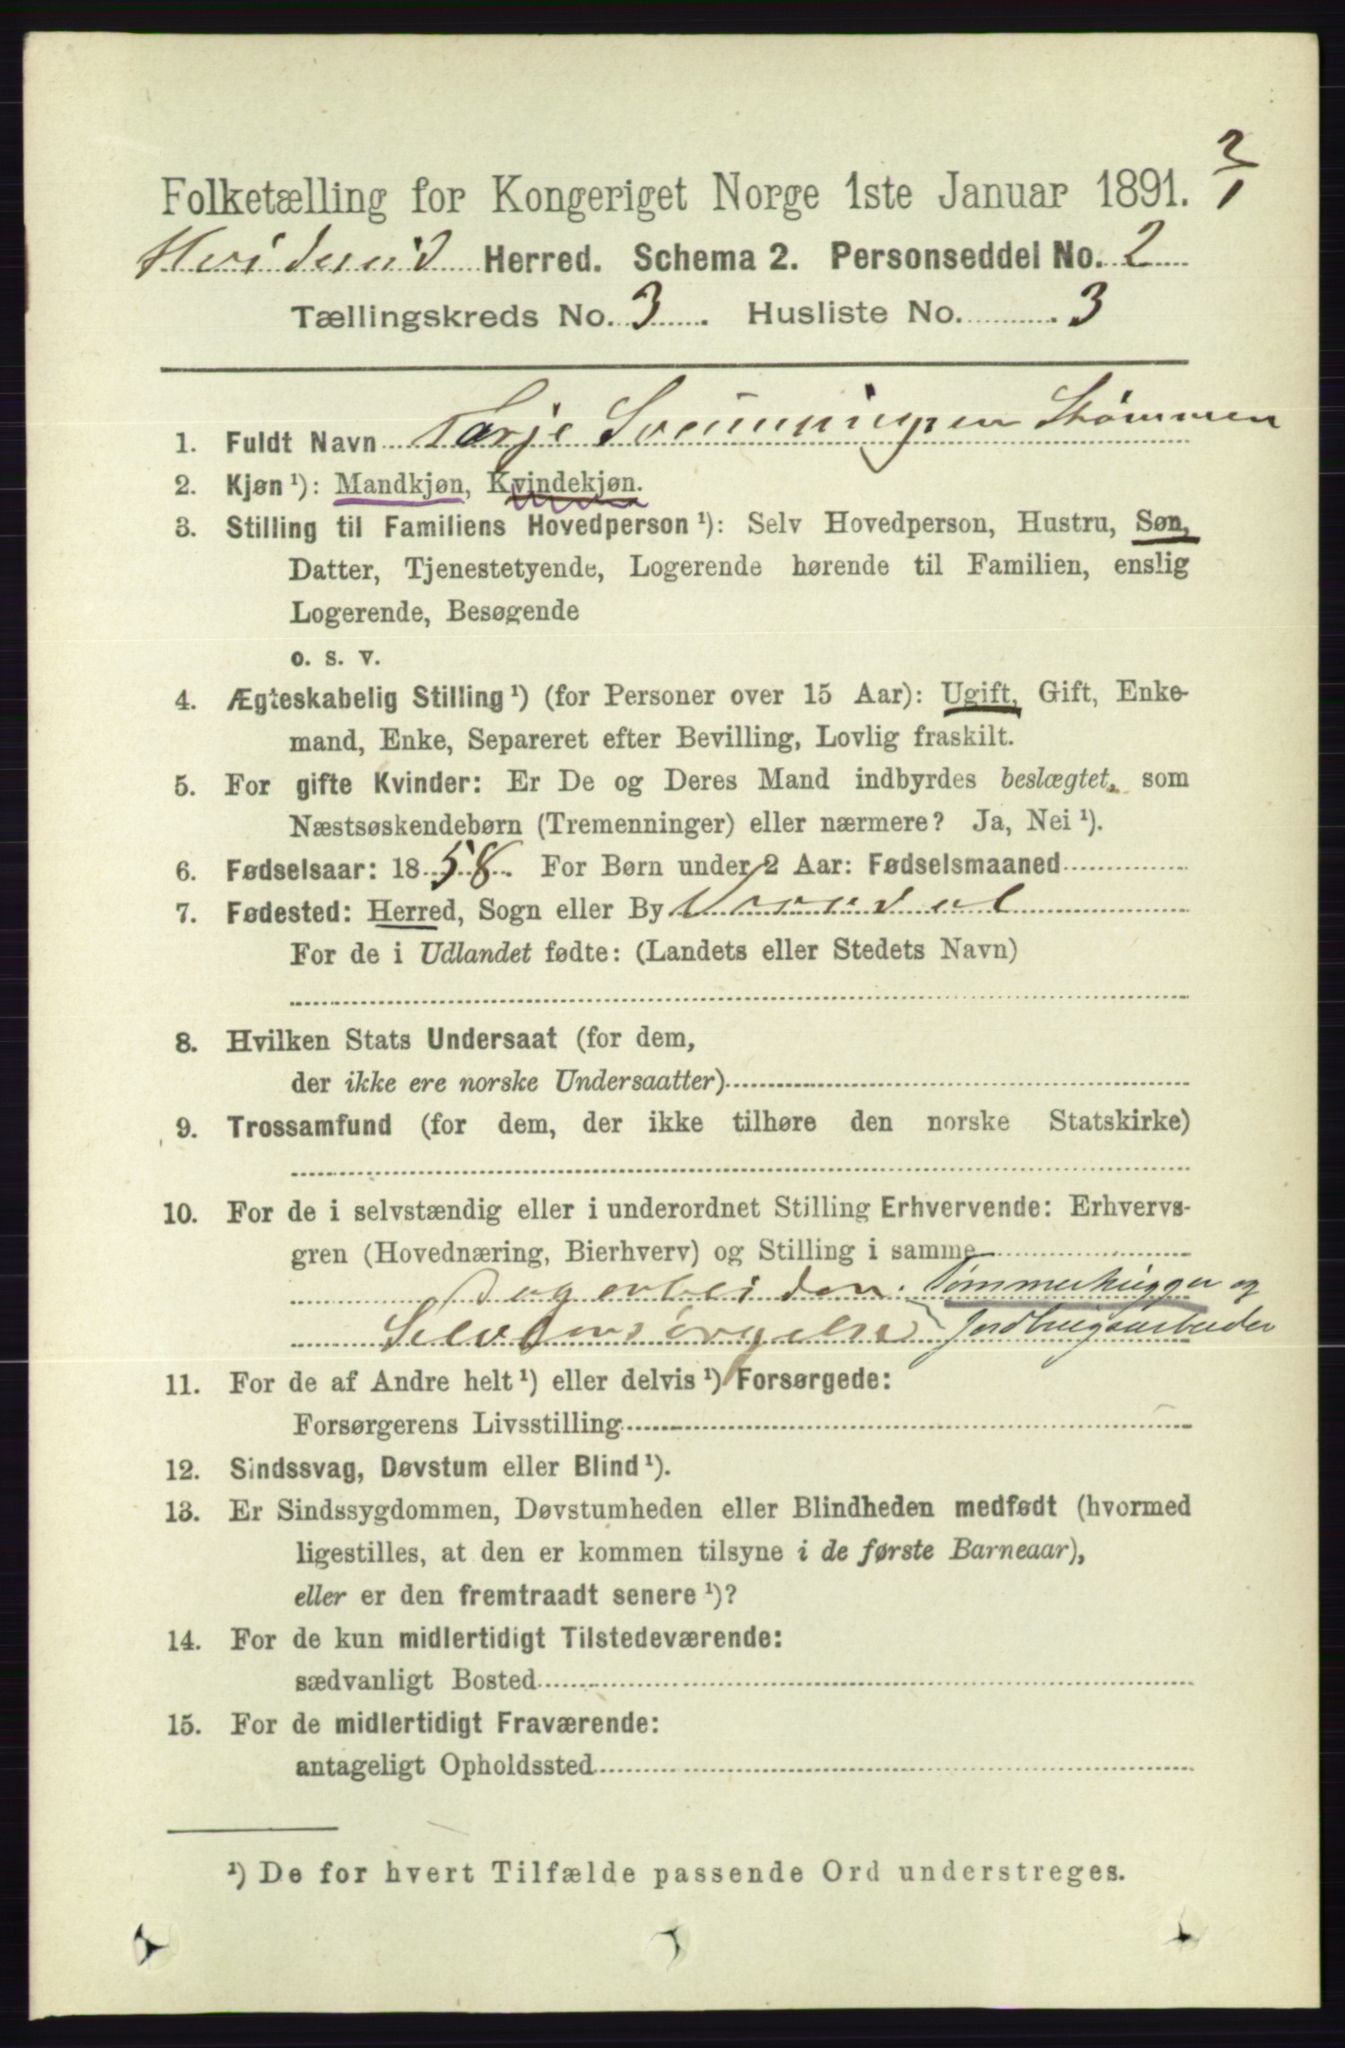 Folketælling for Kongeriget Norge 1ste Januar 1891. 2/1
Hvideseid Herred. Schema 2. Personseddel No. 2
Tællingskreds No. 3. Husliste No. 3
1. Fuldt Navn Tarje Sveinungsen Strømmen
2. Kjøn ¹): Mandkjøn, Kvindekjøn.
3. Stilling til Familiens Hovedperson ¹): Selv Hovedperson, Hustru, Søn,
Datter, Tjenestetyende, Logerende hørende til Familien, enslig
Logerende, Besøgende
o. s. v.
4. Ægteskabelig Stilling ¹) (for Personer over 15 Aar): Ugift, Gift, Enke-
mand, Enke, Separeret efter Bevilling, Lovlig fraskilt.
5. For gifte Kvinder: Er De og Deres Mand indbyrdes beslægtet, som
Næstsøskendebørn (Tremenninger) eller nærmere? Ja, Nei ¹).
6. Fødselsaar: 1858. For Børn under 2 Aar: Fødselsmaaned
7. Fødested: Herred, Sogn eller By
For de i Udlandet fødte: (Landets eller Stedets Navn)
8. Hvilken Stats Undersaat (for dem,
der ikke ere norske Undersaatter)
9. Trossamfund (for dem, der ikke tilhøre den norske Statskirke)
10. For de i selvstændig eller i underordnet Stilling Erhvervende: Erhvervs-
gren (Hovednæring, Bierhverv) og Stilling i samme
Dagarbeiden. Tømmerhugger og
Selvforsørgelse Jordbrugsarbeider
11. For de af Andre helt ¹) eller delvis ¹) Forsørgede:
Forsørgerens Livsstilling
12. Sindssvag, Døvstum eller Blind ¹).
13. Er Sindssygdommen, Døvstumheden eller Blindheden medfødt (hvormed
ligestilles, at den er kommen tilsyne i de første Barneaar),
eller er den fremtraadt senere ¹)?
14. For de kun midlertidigt Tilstedeværende:
sædvanligt Bosted
15. For de midlertidigt Fraværende:
antageligt Opholdssted
¹) De for hvert Tilfælde passende Ord understreges.